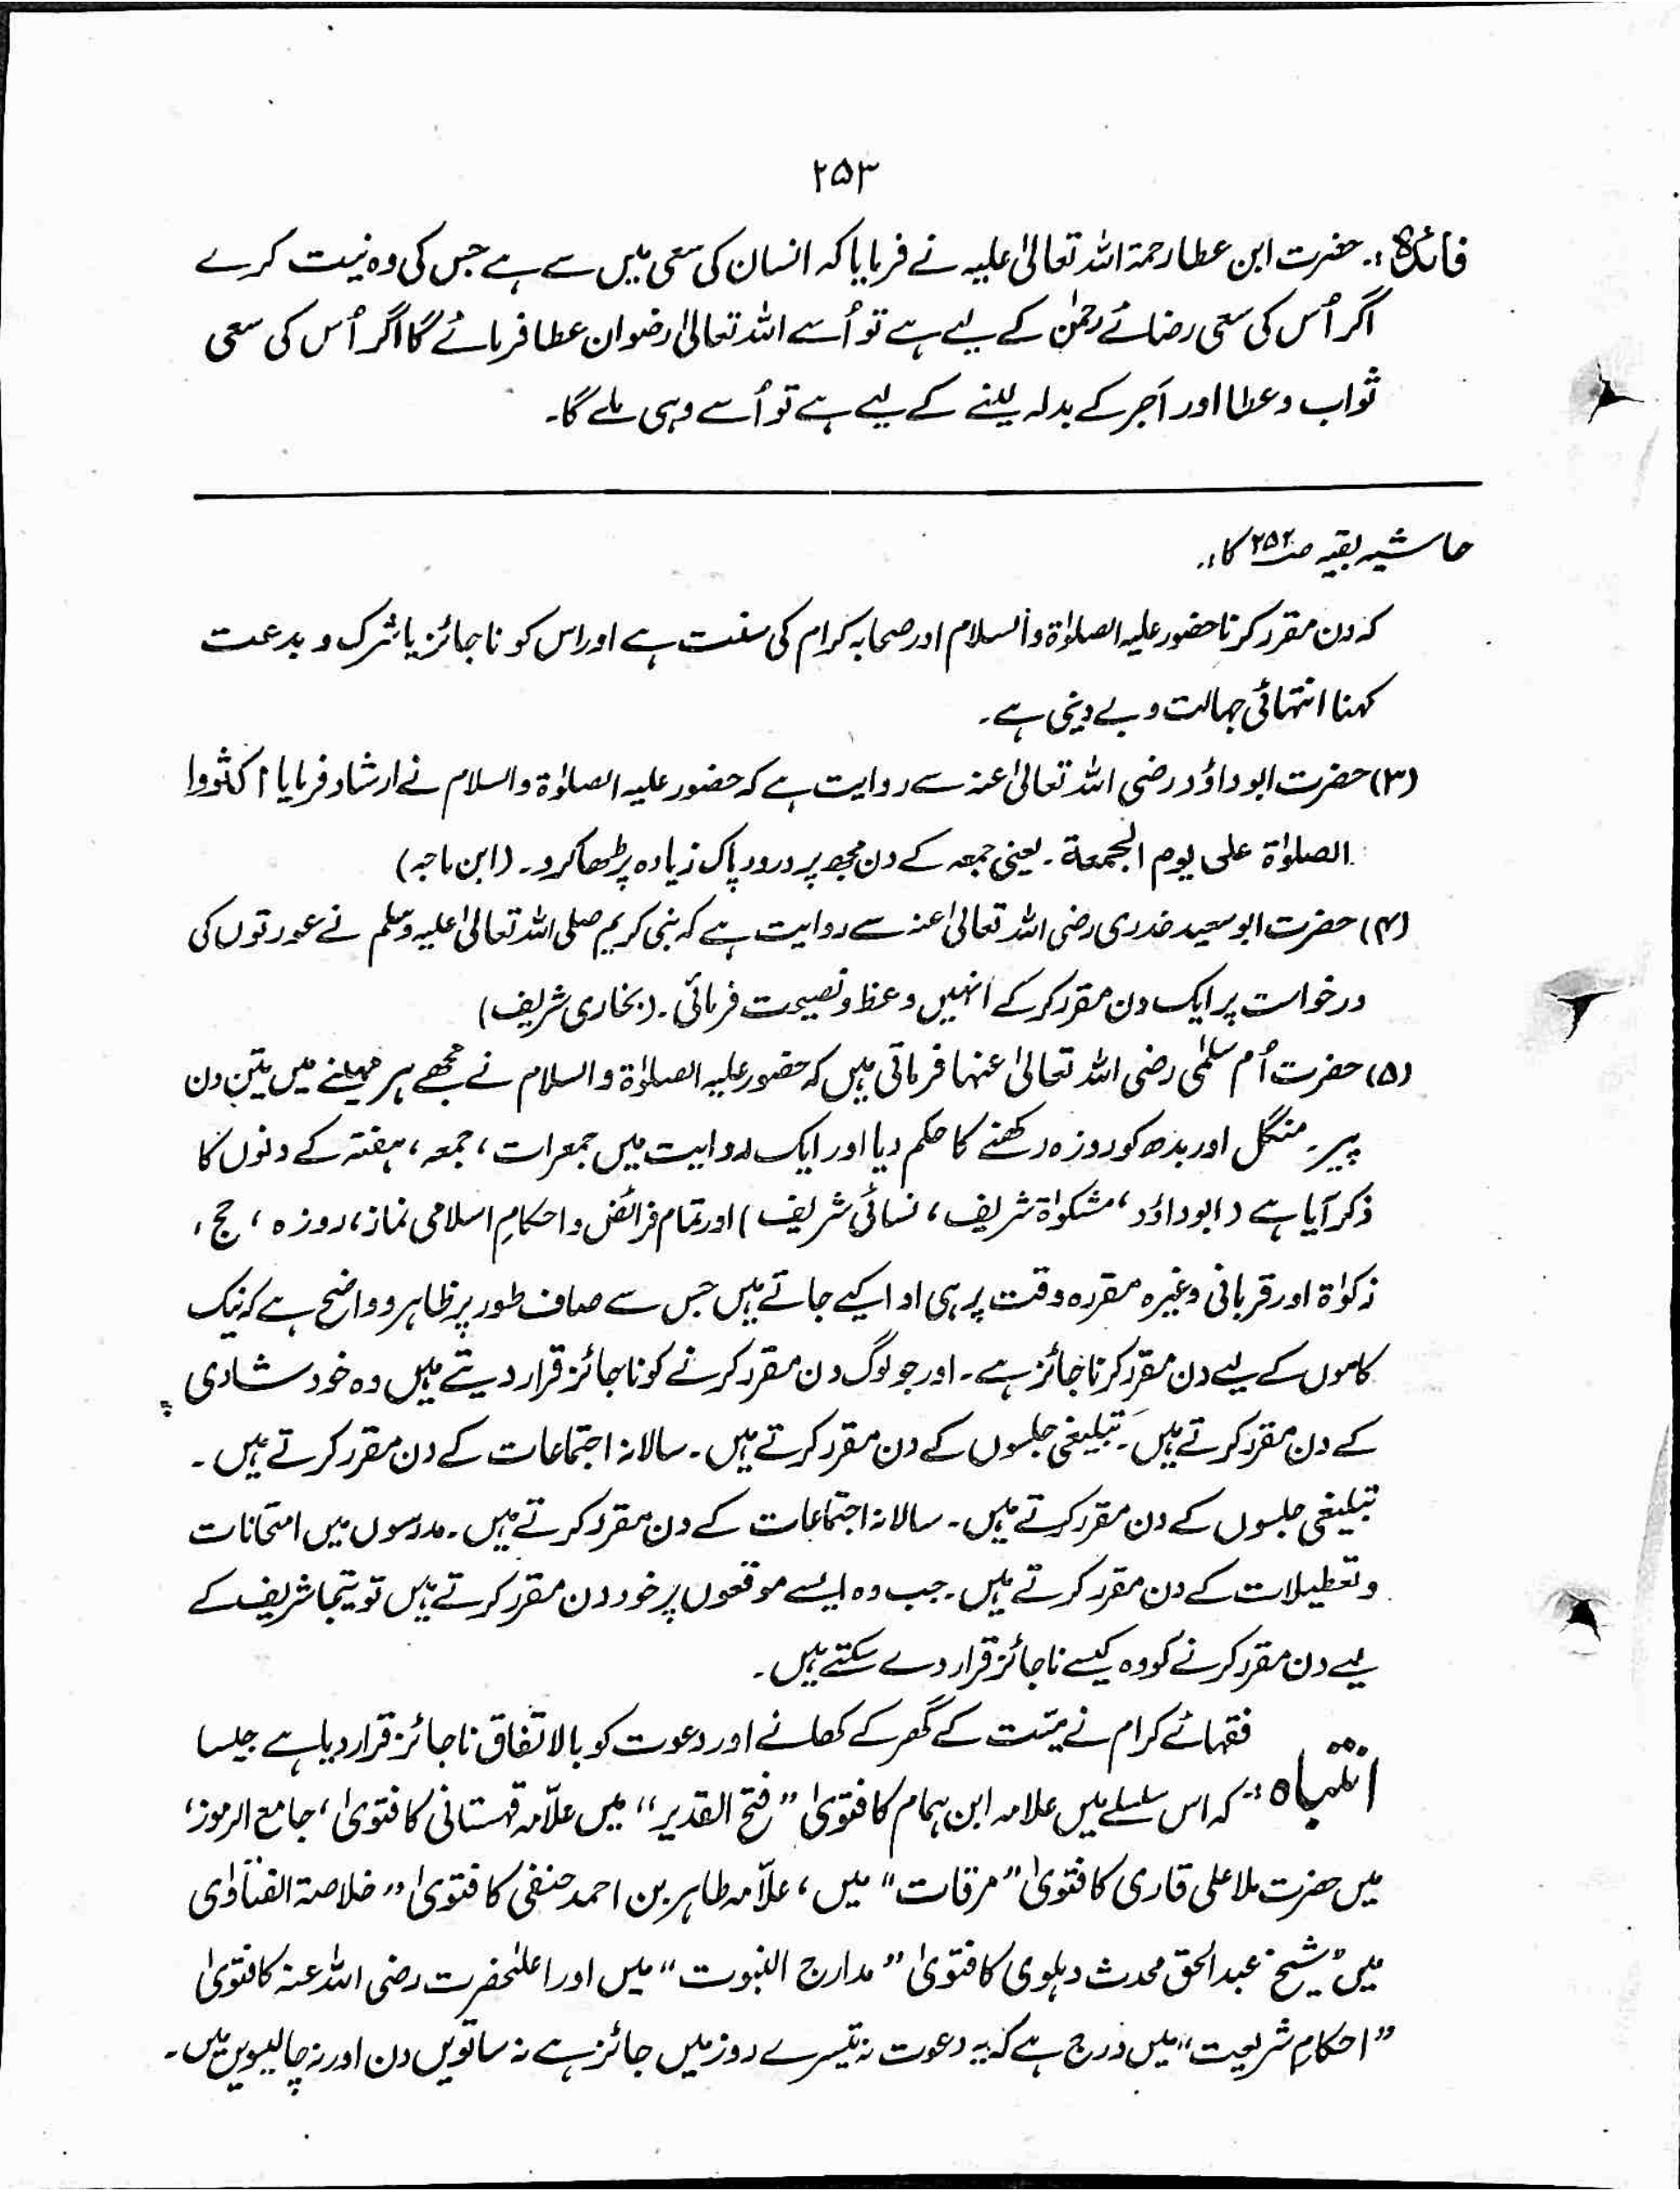 ۲۵۳
فائدہ:۔ حضرت ابن عطا رحمۃ اللہ تعالیٰ علیہ نے فرمایا کہ انسان کی سعی میں سے ہے جس کی وہ نیت کرے
اگر اُس کی سعی رضائے رحمٰن کے لیے ہے تو اُسے اللہ تعالیٰ رضوان عطا فرمائے گا اگر اُس کی سعی
ثواب و عطا اور اَجر کے بدلہ لینے کے لیے ہے تو اُسے وہی ملے گا۔
حاشیہ بقیہ صـ۲۵۲ کا:۔
کہ دن مقرر کرنا حضور علیہ الصلوٰۃ والسلام اور صحابہ کرام کی سنت ہے اور اس کو ناجائز یا شرک و بدعت
کہنا انتہائی جہالت و بے دینی ہے۔
(۳) حضرت ابو داؤد رضی اللہ تعالیٰ عنہ سے روایت ہے کہ حضور علیہ الصلوٰۃ والسلام نے ارشاد فرمایا اکثروا
الصلوٰۃ علی یوم الجمعۃ۔ یعنی جمعہ کے دن مجھ پر درود پاک زیادہ پڑھا کرو۔ (ابن ماجہ)
(۴) حضرت ابو سعید خدری رضی اللہ تعالیٰ عنہ سے روایت ہے کہ نبی کریم صلی اللہ تعالیٰ علیہ وسلم نے عورتوں کی
درخواست پر ایک دن مقرر کر کے انہیں وعظ و نصیحت فرمائی۔ (بخاری شریف)
(۵) حضرت اُم سلمٰی رضی اللہ تعالیٰ عنہا فرماتی ہیں کہ حضور علیہ الصلوٰۃ والسلام نے مجھے ہر مہینے میں تین دن
پیر۔ منگل اور بدھ کو روزہ رکھنے کا حکم دیا اور ایک روایت میں جمعرات، جمعہ، ہفتہ کے دنوں کا
ذکر آیا ہے (ابوداؤد، مشکوٰۃ شریف، نسائی شریف) اور تمام فرائض و احکامِ اسلامی نماز، روزہ، حج،
زکوٰۃ اور قربانی وغیرہ مقررہ وقت پر ہی ادا کیے جاتے ہیں جس سے صاف طور پر ظاہر و واضح ہے کہ نیک
کاموں کے لیے دن مقرر کرنا جائز ہے۔ اور جو لوگ دن مقرر کرنے کو ناجائز قرار دیتے ہیں وہ خود شادی
کے دن مقرر کرتے ہیں۔ تبلیغی جلسوں کے دن مقرر کرتے ہیں۔ سالانہ اجتماعات کے دن مقرر کرتے ہیں۔
تبلیغی جلسوں کے دن مقرر کرتے ہیں۔ سالانہ اجتماعات کے دن مقرر کرتے ہیں۔ مدرسوں میں امتحانات
و تعطیلات کے دن مقرر کرتے ہیں۔ جب وہ ایسے موقعوں پر خود دن مقرر کرتے ہیں تو تیجا شریف کے
لیے دن مقرر کرنے کو وہ کیسے ناجائز قرار دے سکتے ہیں۔
فقہائے کرام نے میّت کے گھر کے کھانے اور دعوت کو بالاتفاق ناجائز قرار دیا ہے جیسا
انتباہ:۔ کہ اس سلسلے میں علامہ ابن ہمام کا فتویٰ ”فتح القدیر“ میں علّامہ قہستانی کا فتویٰ، جامع الرموز،
میں حضرت ملا علی قاری کا فتویٰ ”مرقات“ میں، علّامہ طاہر بن احمد حنفی کا فتویٰ ”خلاصۃ الفتاوٰی
میں“ شیخ عبدالحق محدث دہلوی کا فتویٰ ”مدارج النبوت“ میں اور اعلیٰحضرت رضی اللہ عنہ کا فتویٰ
”احکامِ شریعت“ میں درج ہے کہ یہ دعوت نہ تیسرے روز میں جائز ہے نہ ساتویں دن اور نہ چالیسویں میں۔